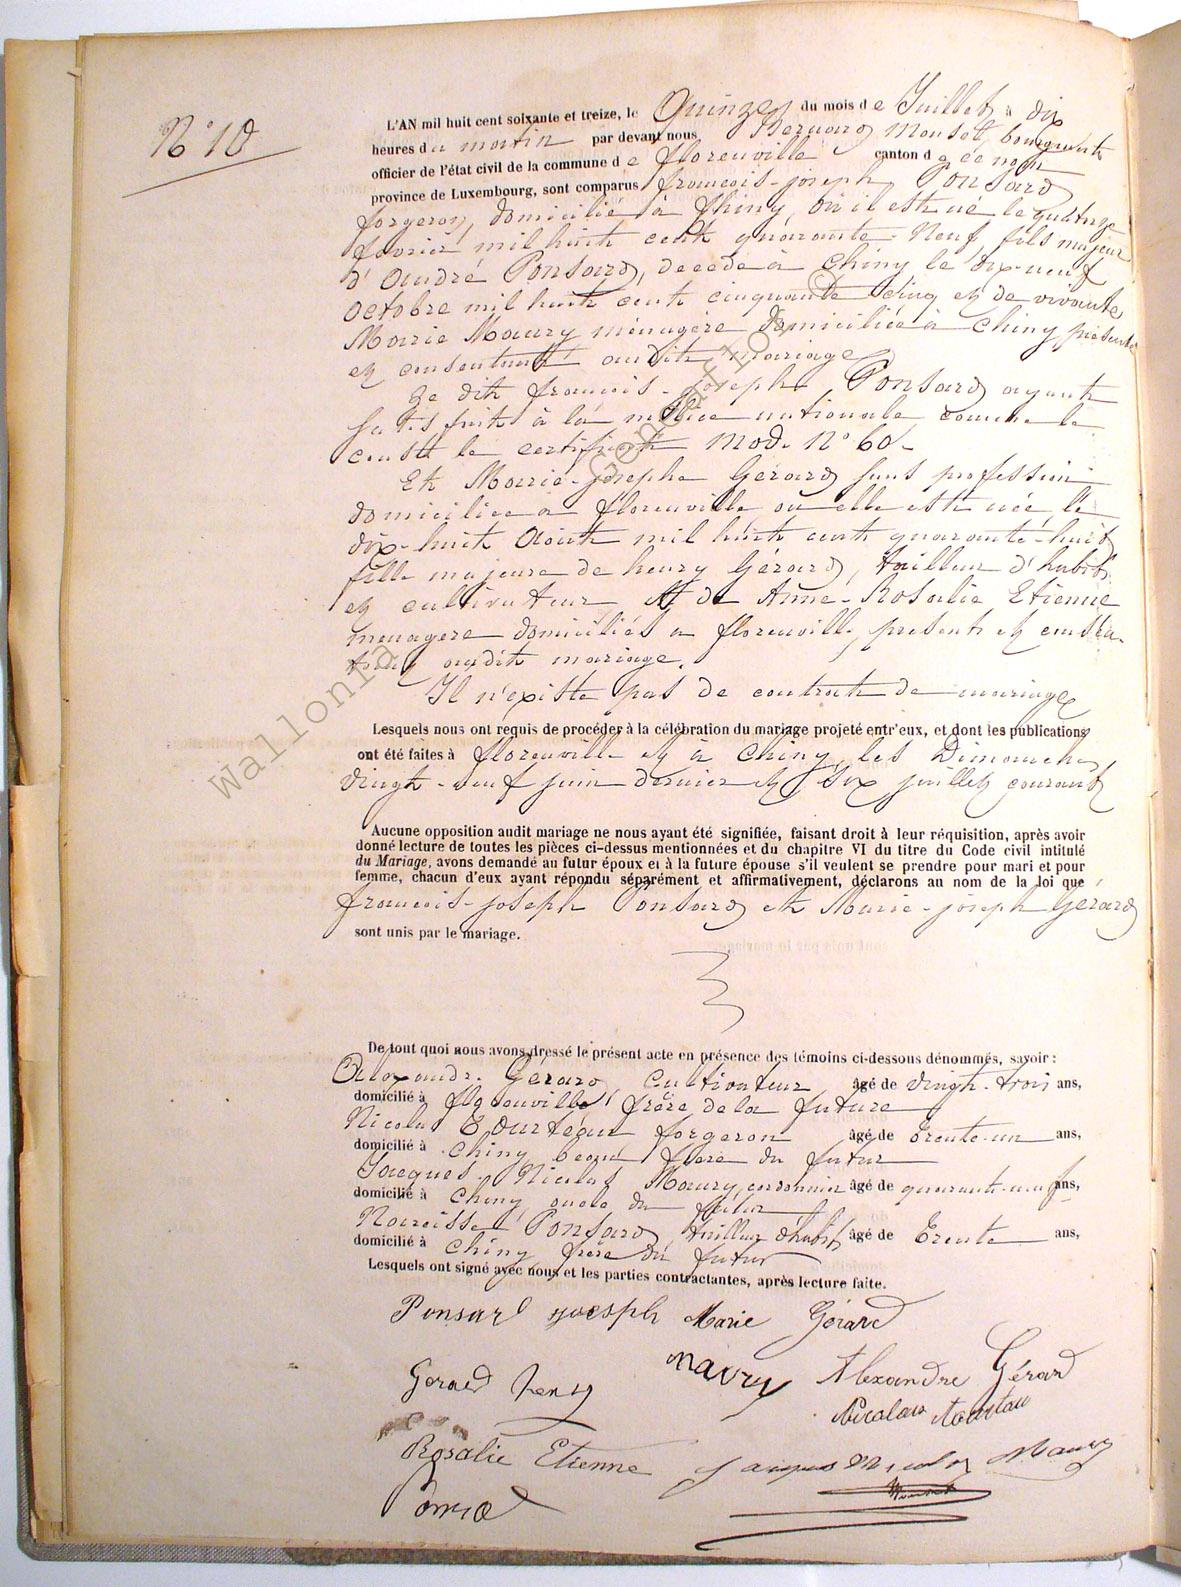 N° 10
L'AN mil huit cent soixante et treize, le Quinze du mois de Juillet à dix
heures du matin par devant nous Bernard Mouset, bourgmestre
officier de l'état civil de la commune de florenville canton de ce nom
province de Luxembourg, sont comparus françois-joseph Ponsard
forgeron, domicilié à Chiny, où il est né le quatorze
février mil huit cent quarante-Neuf, fils majeur
d'André Ponsard, décédé à Chiny le dix-neuf
octobre mil huit cent cinquante cinq et de vivante
Marie Maury ménagère domiciliée à Chiny présente
et consentante audit mariage
Le dit françois-Joseph Ponsard ayant
satisfait à la milice nationale comme le
constate le certificat Mod. N° 60.
Et Marie-josephe Gérard sans profession
domiciliée à florenville où elle est née le
dix-huit Août mil huit cent quarante-huit
fille majeure de henry Gérard, tailleur d'habits
et cultivateur et de Anne-Rosalie Etienne
ménagère domiciliés à florenville, présents et consen-
tants audit mariage.
Il n'existe pas de contrat de mariage
Lesquels nous ont requis de procéder à la célébration du mariage projeté entr'eux, et dont les publications
ont été faites à florenville et à Chiny, les Dimanches
vingt-neuf juin dernier et six juillet courant
Aucune opposition audit mariage ne nous ayant été signifiée, faisant droit à leur réquisition, après avoir
donné lecture de toutes les pièces ci-dessus mentionnées et du chapitre VI du titre du Code civil intitulé
du Mariage, avons demandé au futur époux et à la future épouse s'il veulent se prendre pour mari et pour
femme, chacun d'eux ayant répondu séparément et affirmativement, déclarons au nom de la loi que
françois-joseph Ponsard et Marie-joseph Gérard
sont unis par le mariage.
De tout quoi nous avons dressé le présent acte en présence des témoins ci-dessous dénommés, savoir :
Alexandre Gérard, cultivateur âgé de vingt-trois ans,
domicilié à florenville, frère de la future
Nicolas Tourteau forgeron âgé de trente-un ans,
domicilié à Chiny beau frère du futur
Jacques-Nicolas Maury, cordonnier âgé de quarante-neuf ans,
domicilié à Chiny, oncle du futur
Narcisse Ponsard, tailleur d'habits âgé de trente ans,
domicilié à Chiny frère du futur
Lesquels ont signé avec nous et les parties contractantes, après lecture faite.
Ponsard joesph Marie Gérard
Gerard henry maury Alexandre Gérard
Nicolas tourtau
Rosalie Etienne Jacques Nicolas Maury
Wallonia Genealogie ©